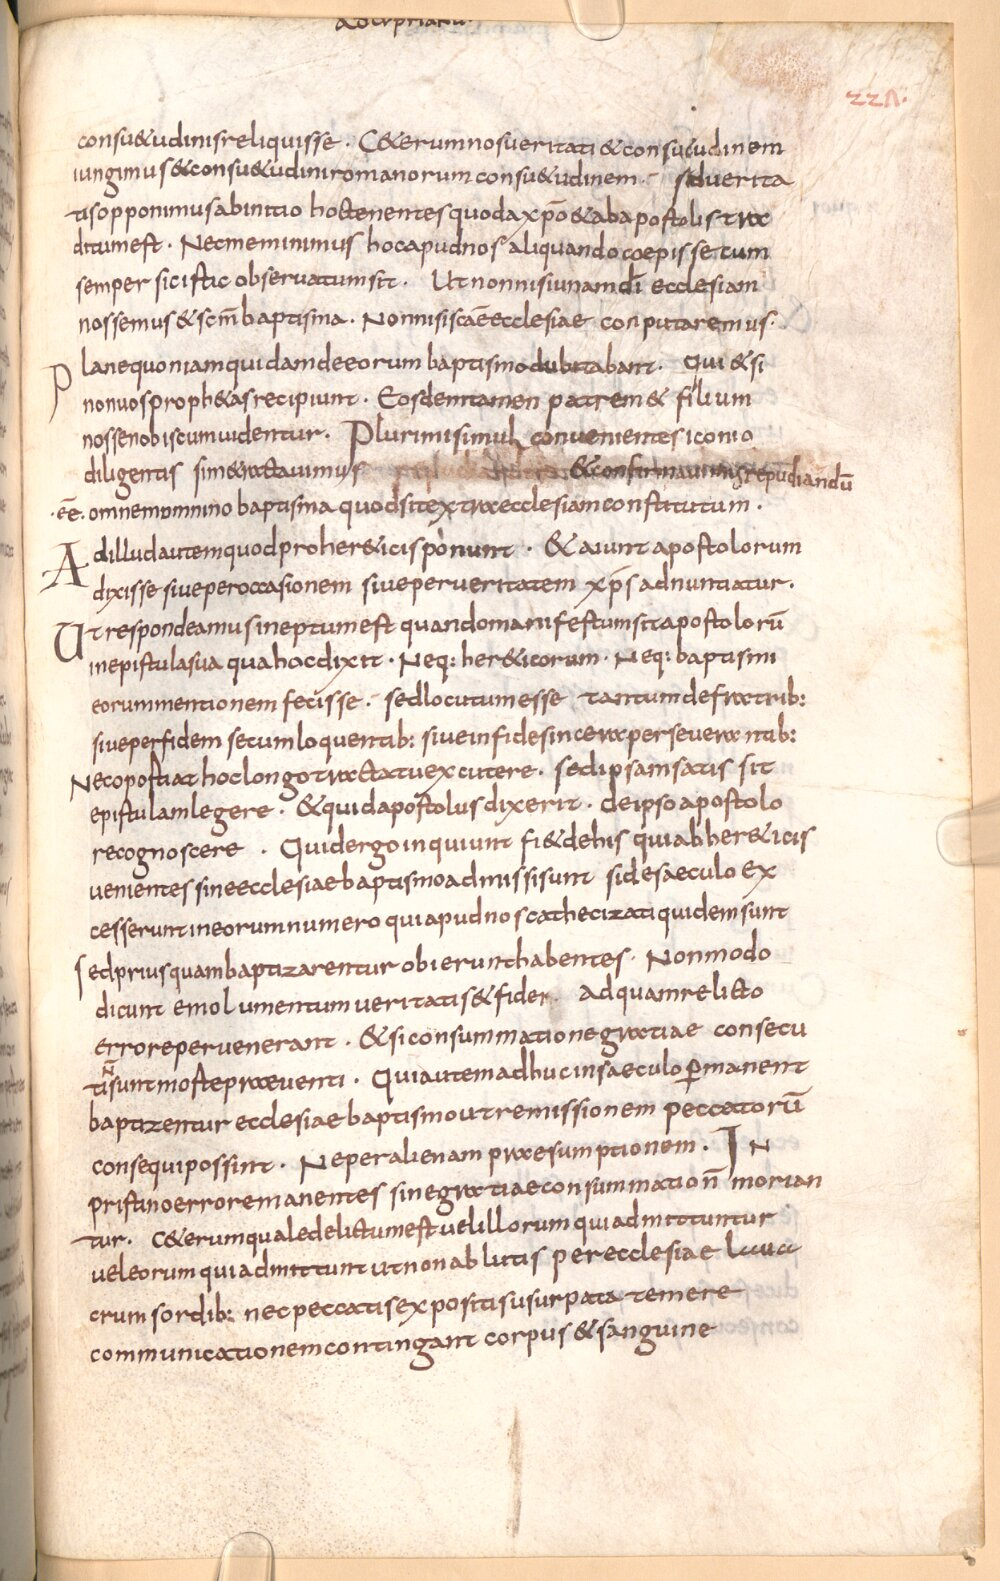 consu&udinisreliquisse · C&erumnosueritati&consu&udinem
iungimus&consu&udiniromanorumconsu&udinem · seduerita
tisopponimusabinitio hoctenentesquodaxp̄o&abapostolistra
ditumest · Necmeminimus hocapudnos aliquandocoepisse cum
semper sicistic obseruatumsit · Ut nonnisiunamdī ecclesiam
nossemus&scm̄baptisma · Nonnisiscāēecclesiae conputaremus ·
Planequoniamquidamdeeorum baptismodubitabant · Qui&si
nonuosproph&asrecipiunt · Eosdemtamen patrem& filium
nossenobiscumuidentur · Plurimisimul conuenientesiconio
diligentis sim&ractauimus &confirmauimusrepudiandū
·ēē· omnemomnino baptisma quodsitextraecclesiamconstitutum ·
Adilludautemquodproher&icisponunt · &aiuntapostolorum
dixisse siueperoccasionem siueperueritatem xp̄s adnuntiatur ·
Utrespondeamusineptumest quandomanifestumsitapostolorū
inepistulasua quahocdixit · Neq: her&icorum · Neq: baptismi
eorummentionem fecisse · sedlocutumesse tantumdefratrib:
siueperfidem secumloquentib: siueinfidesinceraperseuerantib:
Necopostiathoclongotractatuexcutere · sedipsamsatis sit
epistulamlegere · &quidapostolusdixerit · deipsoapostolo
recognoscere · Quidergoinquiunt fi&dehis quiabher&icis
uenientes sineecclesiaebaptismoadmissisunt sidesaeculo ex
cesseruntineorumnumero quiapudnoscathecizatiquidemsunt
sedpriusquambaptizarentur obierunthabentes · Nonmodo
dicunt emolumentumueritatis&fidei · Adquamrelicto
errorepervenerant · &siconsummationegratiae consecu
tisuntmortepraeuenti · Quiautemadhucinsaeculop̄manent
baptizentur ecclesiaebaptismoutremissionem peccatorū
consequipossint · Neperalienam praesumptionem · IN
pristinoerroremanentes sinegratiaeconsummationē morian
tur · C&erumqualedelictumestuelillorumquiadmittuntur
ueleorumquiadmittuntutnonablutis perecclesiae laua
crumsordib: necpeccatisexpositisusurpata temere
communicationemcontingant corpus&sanguine